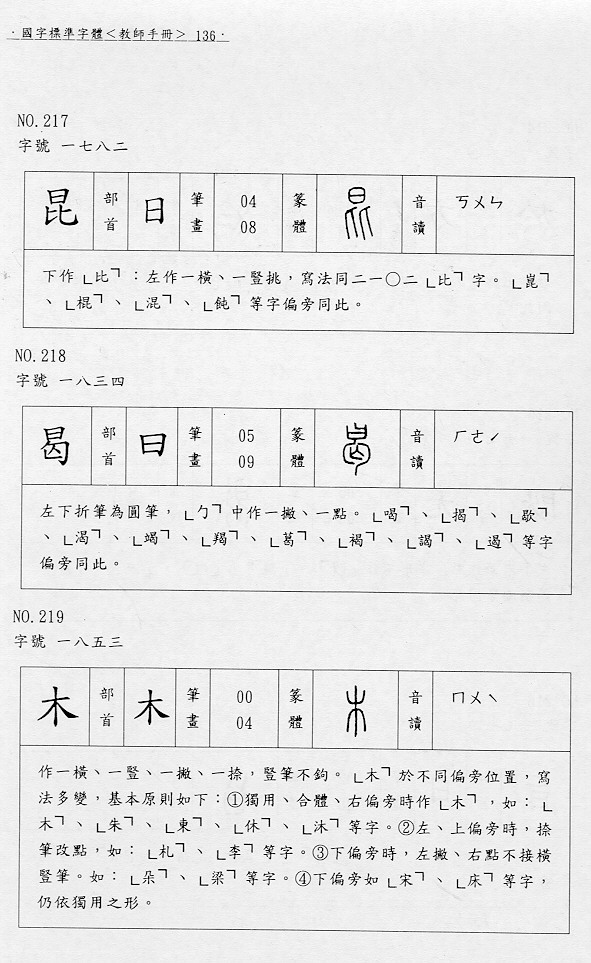 ·國字標準字體＜教師手冊＞ 136·
NO.217
字號 一七八二
昆 部首 日 筆畫 04 08 篆體 音讀 ㄎㄨㄣ
下作「比」：左作一橫、一豎挑，寫法同二一〇二「比」字。「崑」
、「棍」、「混」、「餛」等字偏旁同此。
NO.218
字號 一八三四
曷 部首 曰 筆畫 05 09 篆體 音讀 ㄏㄜˊ
左下折筆為圓筆，「勹」中作一撇、一點。「喝」、「揭」、「歇」
、「渴」、「蝎」、「羯」、「葛」、「褐」、「謁」、「遏」等字
偏旁同此。
NO.219
字號 一八五三
木 部首 木 筆畫 00 04 篆體 音讀 ㄇㄨˋ
作一橫、一豎、一撇、一捺，豎筆不鉤。「木」於不同偏旁位置，寫
法多變，基本原則如下：①獨用、合體、右偏旁時作「木」，如：「
木」、「朱」、「東」、「休」、「沐」等字。②左、上偏旁時，捺
筆改點，如：「札」、「李」等字。③下偏旁時，左撇、右點不接橫
豎筆。如：「朵」、「梁」等字。④下偏旁如「宋」、「床」等字，
仍依獨用之形。